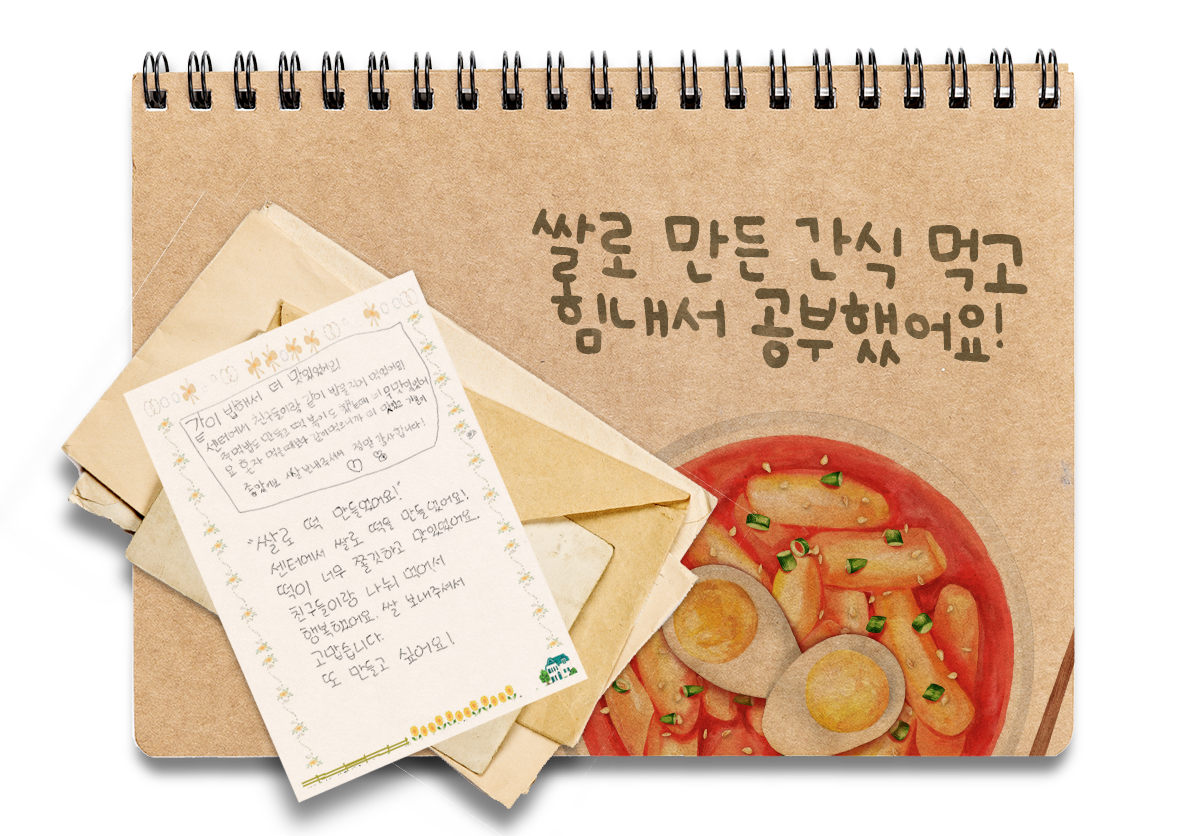 쌀로 만든 간식 먹고
힘내서 공부했어요!
같이 밥해서 더 맛있었어요
센터에서 친구들이랑 같이 밥을 먹어 맛있어요
주먹밥도 만들고 떡볶이도 했는데 너무 맛있었어
요 혼자 먹을때보다 같이먹으니까 더 맛있고
좋았어요 쌀 보내주셔서 정말 감사합니다!
"쌀로 떡 만들었어요!"
센터에서 쌀로 떡을 만들었어요!
떡이 너무 쫄깃하고 맛있었어요.
친구들이랑 나눠 먹어서
행복했어요. 쌀 보내주셔서
고맙습니다.
또 만들고 싶어요!